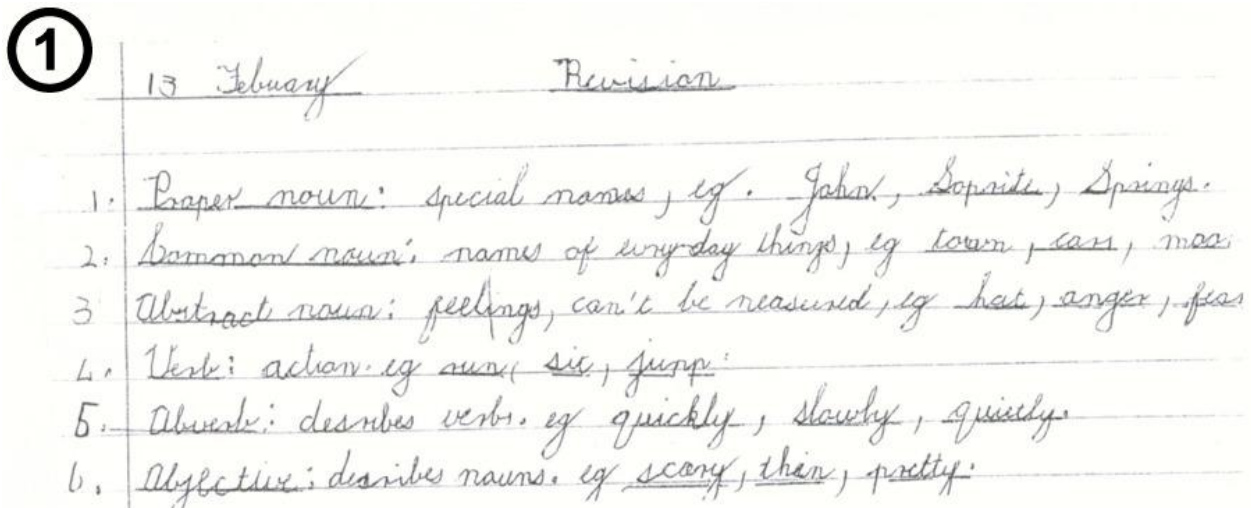 1
13 Febuary Revision
1. Proper noun: special names, eg. John, Soprite, Springs.
2. Common noun: names of everyday things, eg town, cars,
3 Abstract noun: feelings, can't be neasured, eg hat, anger, fear
4. Verb: action. eg run, sit, jump.
5. Abverb: desribes verbs. eg quickly, slowly, quietly.
6. Abjective: desribes nouns. eg scary, thin, pretty.